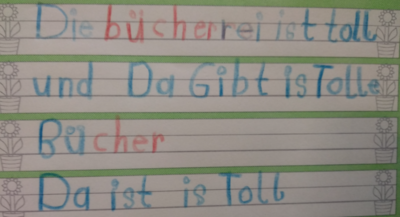 Die bücherrei ist toll
und Da Gibt is Tolle
Bücher
Da ist is Toll